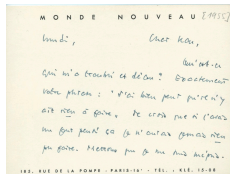 MONDE NOUVEAU [1955]
Lundi,
Cher Mon,
Qu'est-ce
qui m'a troublé et déçu ? Exactement
votre phrase : "J'ai bien peur qu'il n'y
ait rien à faire." Je crois que si j'avais
pensé ça je n'aurais jamais rien
pu faire. Mettons que je me suis
182, RUE DE LA POMPE - PARIS-16ᵉ - TÉL. : KLÉ. 15-00